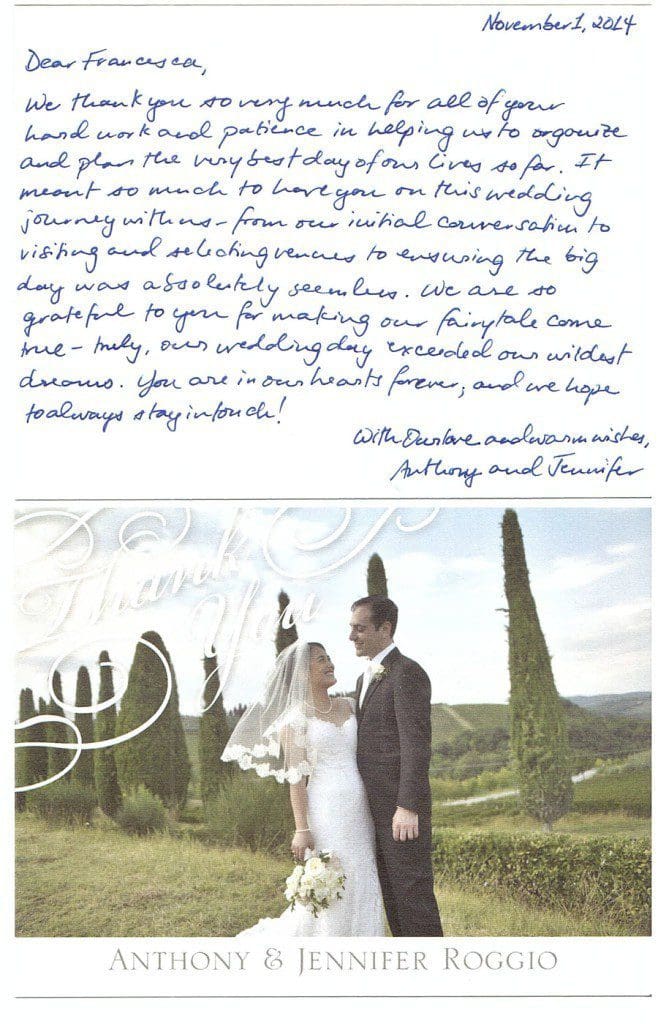 November 1, 2014
Dear Francesca,
We thank you so very much for all of your
hard work and patience in helping us to organize
and plan the very best day of our lives so far. It
meant so much to have you on this wedding
journey with us - from our initial conversation to
visiting and selecting venues to ensuring the big
day was absolutely seemless. We are so
grateful to you for making our fairytale come
true - truly, our wedding day exceeded our wildest
dreams. You are in our hearts forever, and we hope
to always stay in touch!
With Our love and warm wishes,
Anthony and Jennifer
Thank
You
ANTHONY & JENNIFER ROGGIO